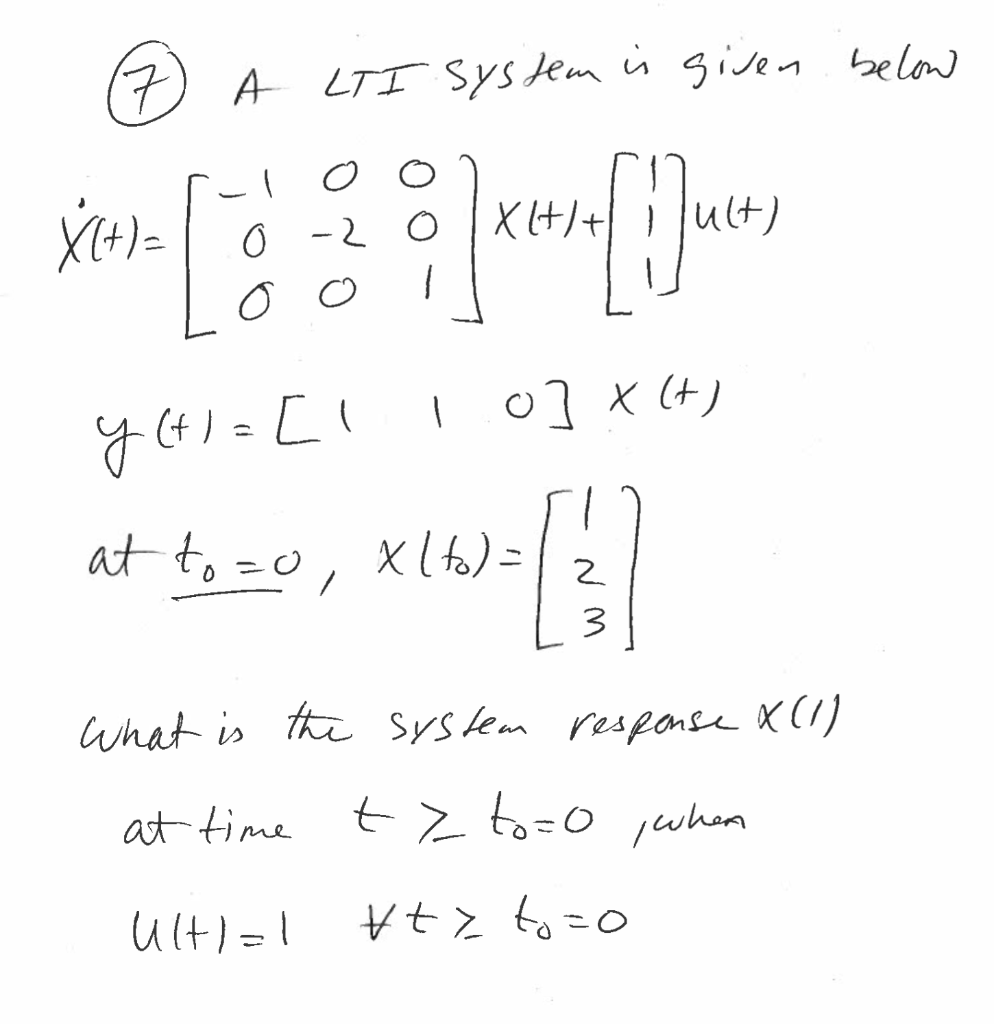 ⑦ A LTI system is given below
Ẋ(t) = [ -1 0 0 ; 0 -2 0 ; 0 0 1 ] X(t) + [ 1 ; 1 ; 1 ] u(t)
y(t) = [ 1 1 0 ] X(t)
at t₀ = 0, X(t₀) = [ 1 ; 2 ; 3 ]
what is the system response X(1)
at time t ≥ t₀=0, when
U(t) = 1 ∀t ≥ t₀=0